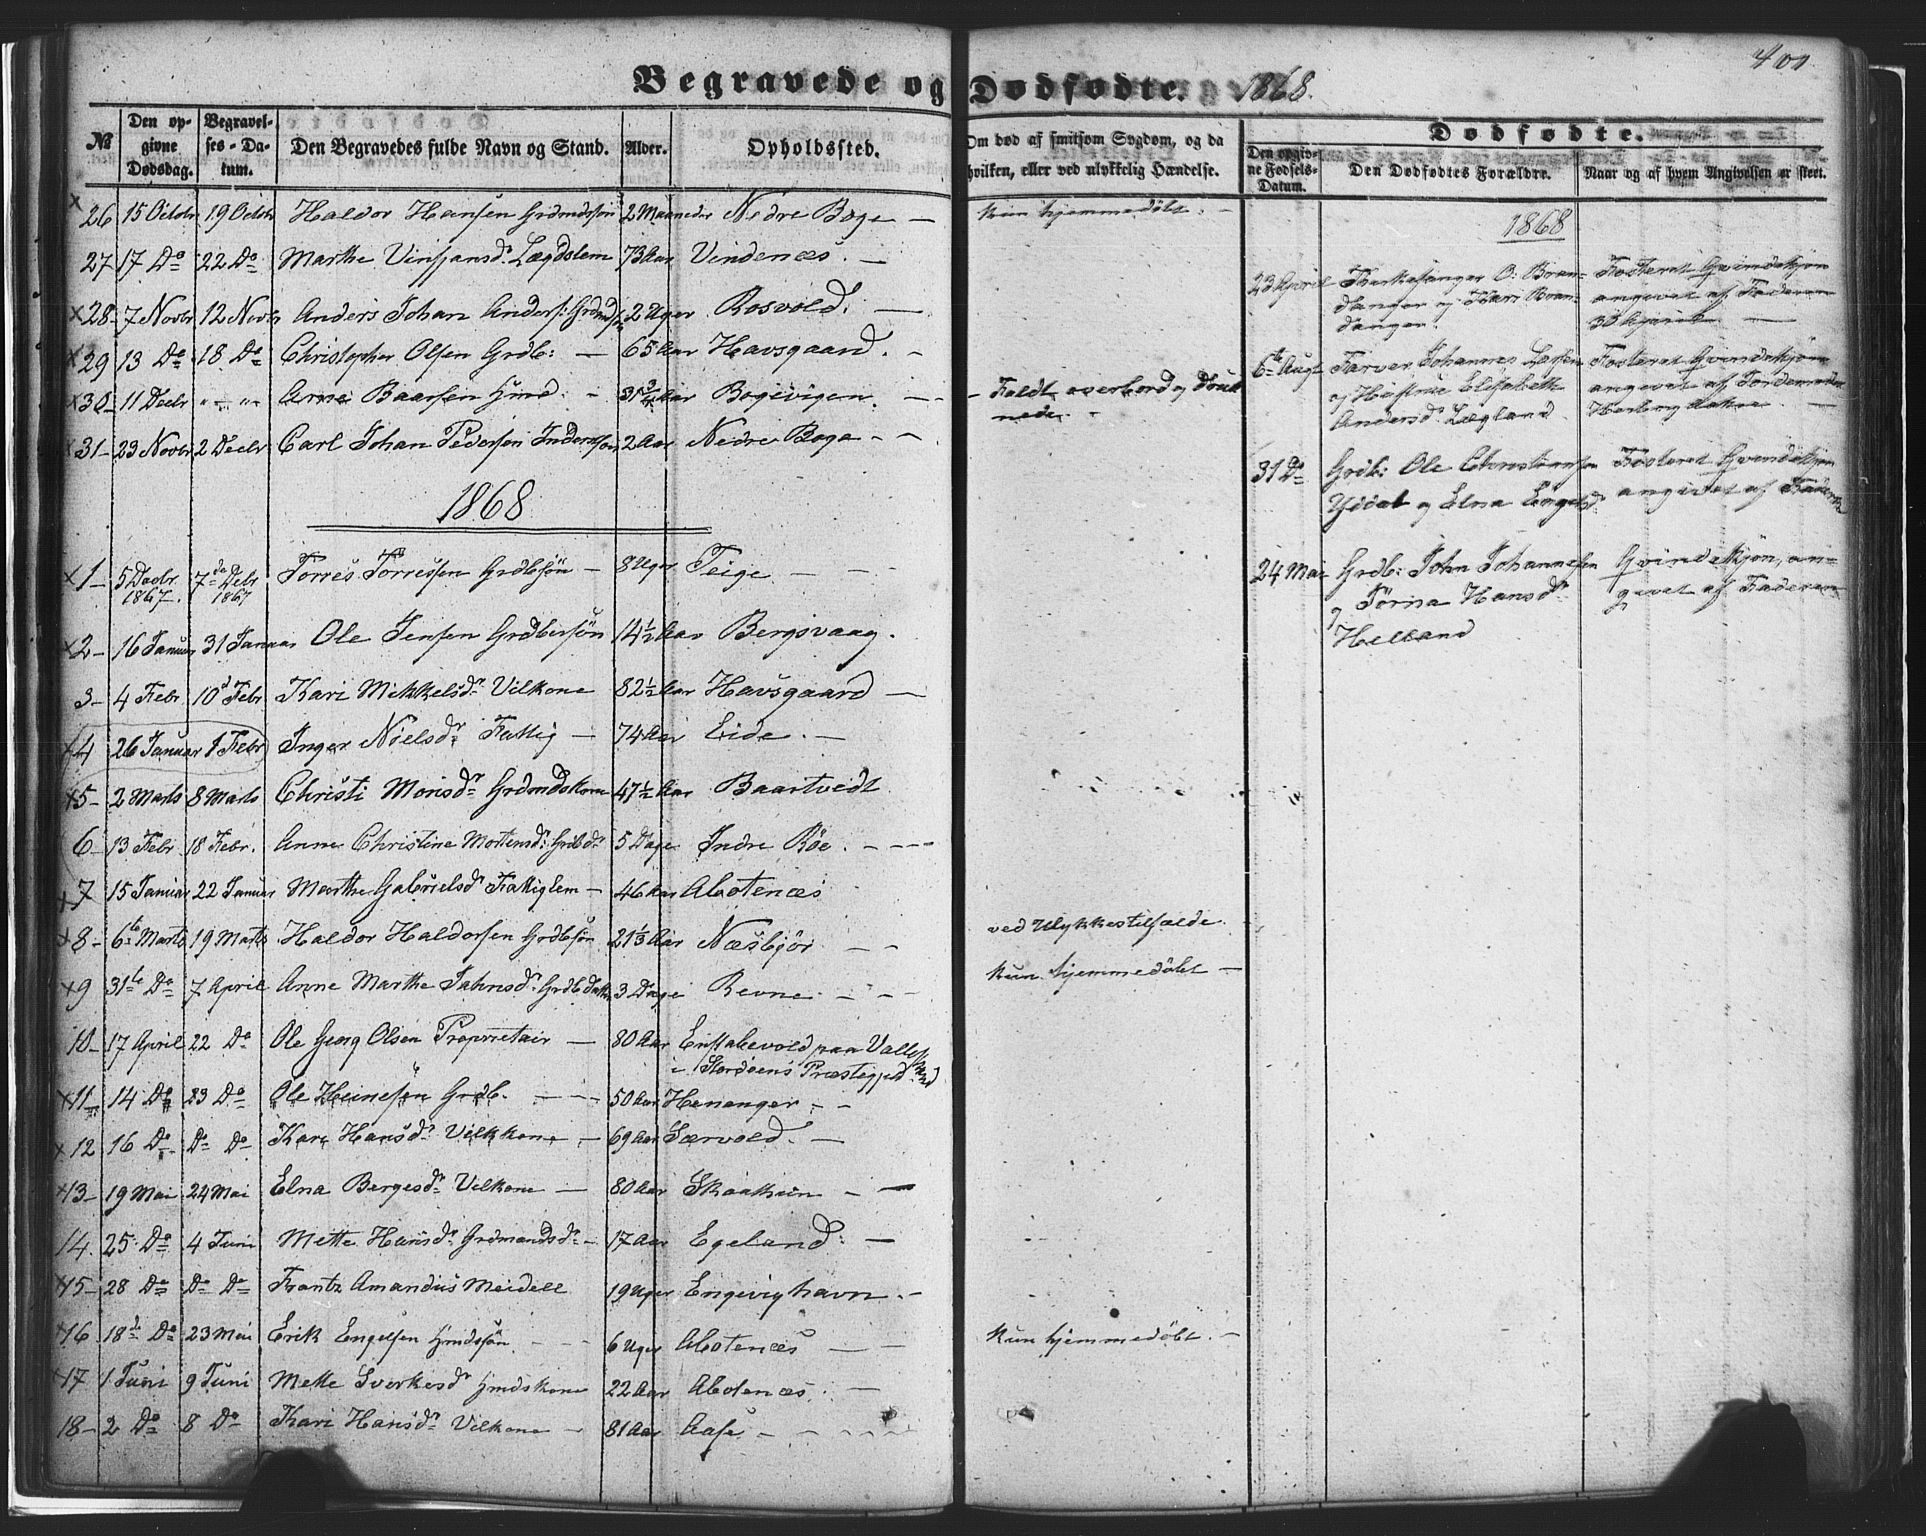 401
Begravede og Dødfødte. 1868.
№ | Den opgivne Dødsdag. | Begravelses-Datum. | Den Begravedes fulde Navn og Stand. | Alder. | Opholdssted. | Om død af smitsom Sygdom, og da hvilken, eller ved ulykkelig Hændelse.
26 15 Octobr 19 Octobr Haldor Hansen Grdmdssøn 2 Maaneder Nedre Bøge — kun hjemmedøbt. —
27 17 Do 22 Do Marthe Vinsjansdr Lægdslem 73 Aar Vindenæs. —
28 7 Novbr 12 Novbr Anders Johan Anders: Grdmdssøn 2 Uger Rosvold. —
29 13 Do 18 Do Christopher Olsen Grdb: — 65 Aar Havsgaard. —
30 11 Decbr " — " Arne Baarsen Hmd. — 31 3/4 Aar Bogevigen. — Faldt overbord og druknede.
31 23 Novbr 2 Decbr Carl Johan Pedersen 2 Aar Nedre Bøge — —
1868
1 5 Decbr 1867. 7de Debr 1867 Torres Torressen Grdbsøn — 8 Uger Teige — —
2 16 Januar 31 Januar Ole Jensen Grdbersøn 14 1/2 Aar Bergsvaag.
3 4 Febr 10d Febr Kari Mikkelsdr Vilkone 82 1/2 Aar Havsgaard —
4 26 Januar 1 Febr Inger Nielsdr Fattig — 74 Aar Eide. —
5 2 Marts 8 Marts Christi Monsdr Grdmdskone 47 1/2 Aar Baartvedt
6 13 Febr 18 Febr. Anne Christine Mortensdr: Grdbdr 5 Dage Indre Røe. — — —
7 15 Januar 22 Januar Marthe Gabrielsdr Fattiglem — 46 Aar Alvotenæs
8 6te Marts 19 Marts Haldor Haldorsen Grdbsøn 21 1/3 Aar Næsbjør — — ved Ulykkestilfælde.
9 31te Do 7 April Anne Marthe Jahnsdr Grdbdatter 3 Dage Revne. — — kun hjemmedøbt —
10 17 April 22 Do Ole Georg Olsen Proprietair — 80 Aar Eristabevold paa Valle
i Stordøens Præstegjeld
11 14 Do 23 Do Ole Heinesen Grdb. — — 50 Aar Henanger — —
12 16 Do Do Do Kari Hansdr Vilkkone — 69 Aar Særvold. —
13 19 Mai 24 Mai Elna Bergesdr Vilkone — 80 Aar Skaathun — —
14. 25 Do 4 Juni Mette Hansdr Grdmandsdr — 17 Aar Egeland: —
15 28 Do Do Do Frantz Amandus Meidell 19 Uger Engevighavn. —
16 18de Do 23 Mai Erik Engelsen Hmdssøn. — — 6 Uger Alvotenæs — — kun hjemmedøbt. —
17 1 Juni 9 Juni Mette Sverkesdr Hmdskone 22 Aar Alvotenæs. —
18 2 Do 8 Do Kari Hansdr Vilkone — 81 Aar Aase. — — — —
Dødfødte.
Den opgivne Fødsels-Datum. | Den Dødfødtes Forældre. | Naar og af hvem Angivelsen er skeet.
1868
23 April Kirkesanger O: Brandanger og Kari Brandanger. Fosteret Qvindekjøn angivet af Faderen 30 April —
6te Augt Farver Johannes og Hustrue Elisabeth Andersdr Lægland. Fosteret Qvindekjøn angivet af Jordemoder —
31 Do Grdb: Ole Christiansen Yddal og Elna Engelsdr Fosteret Qvindekjøn angivet af Faderen
24 Mai Grdb: John Johannesen og Torna Hansdr Helland Qvindekjøn, angivet af Faderen